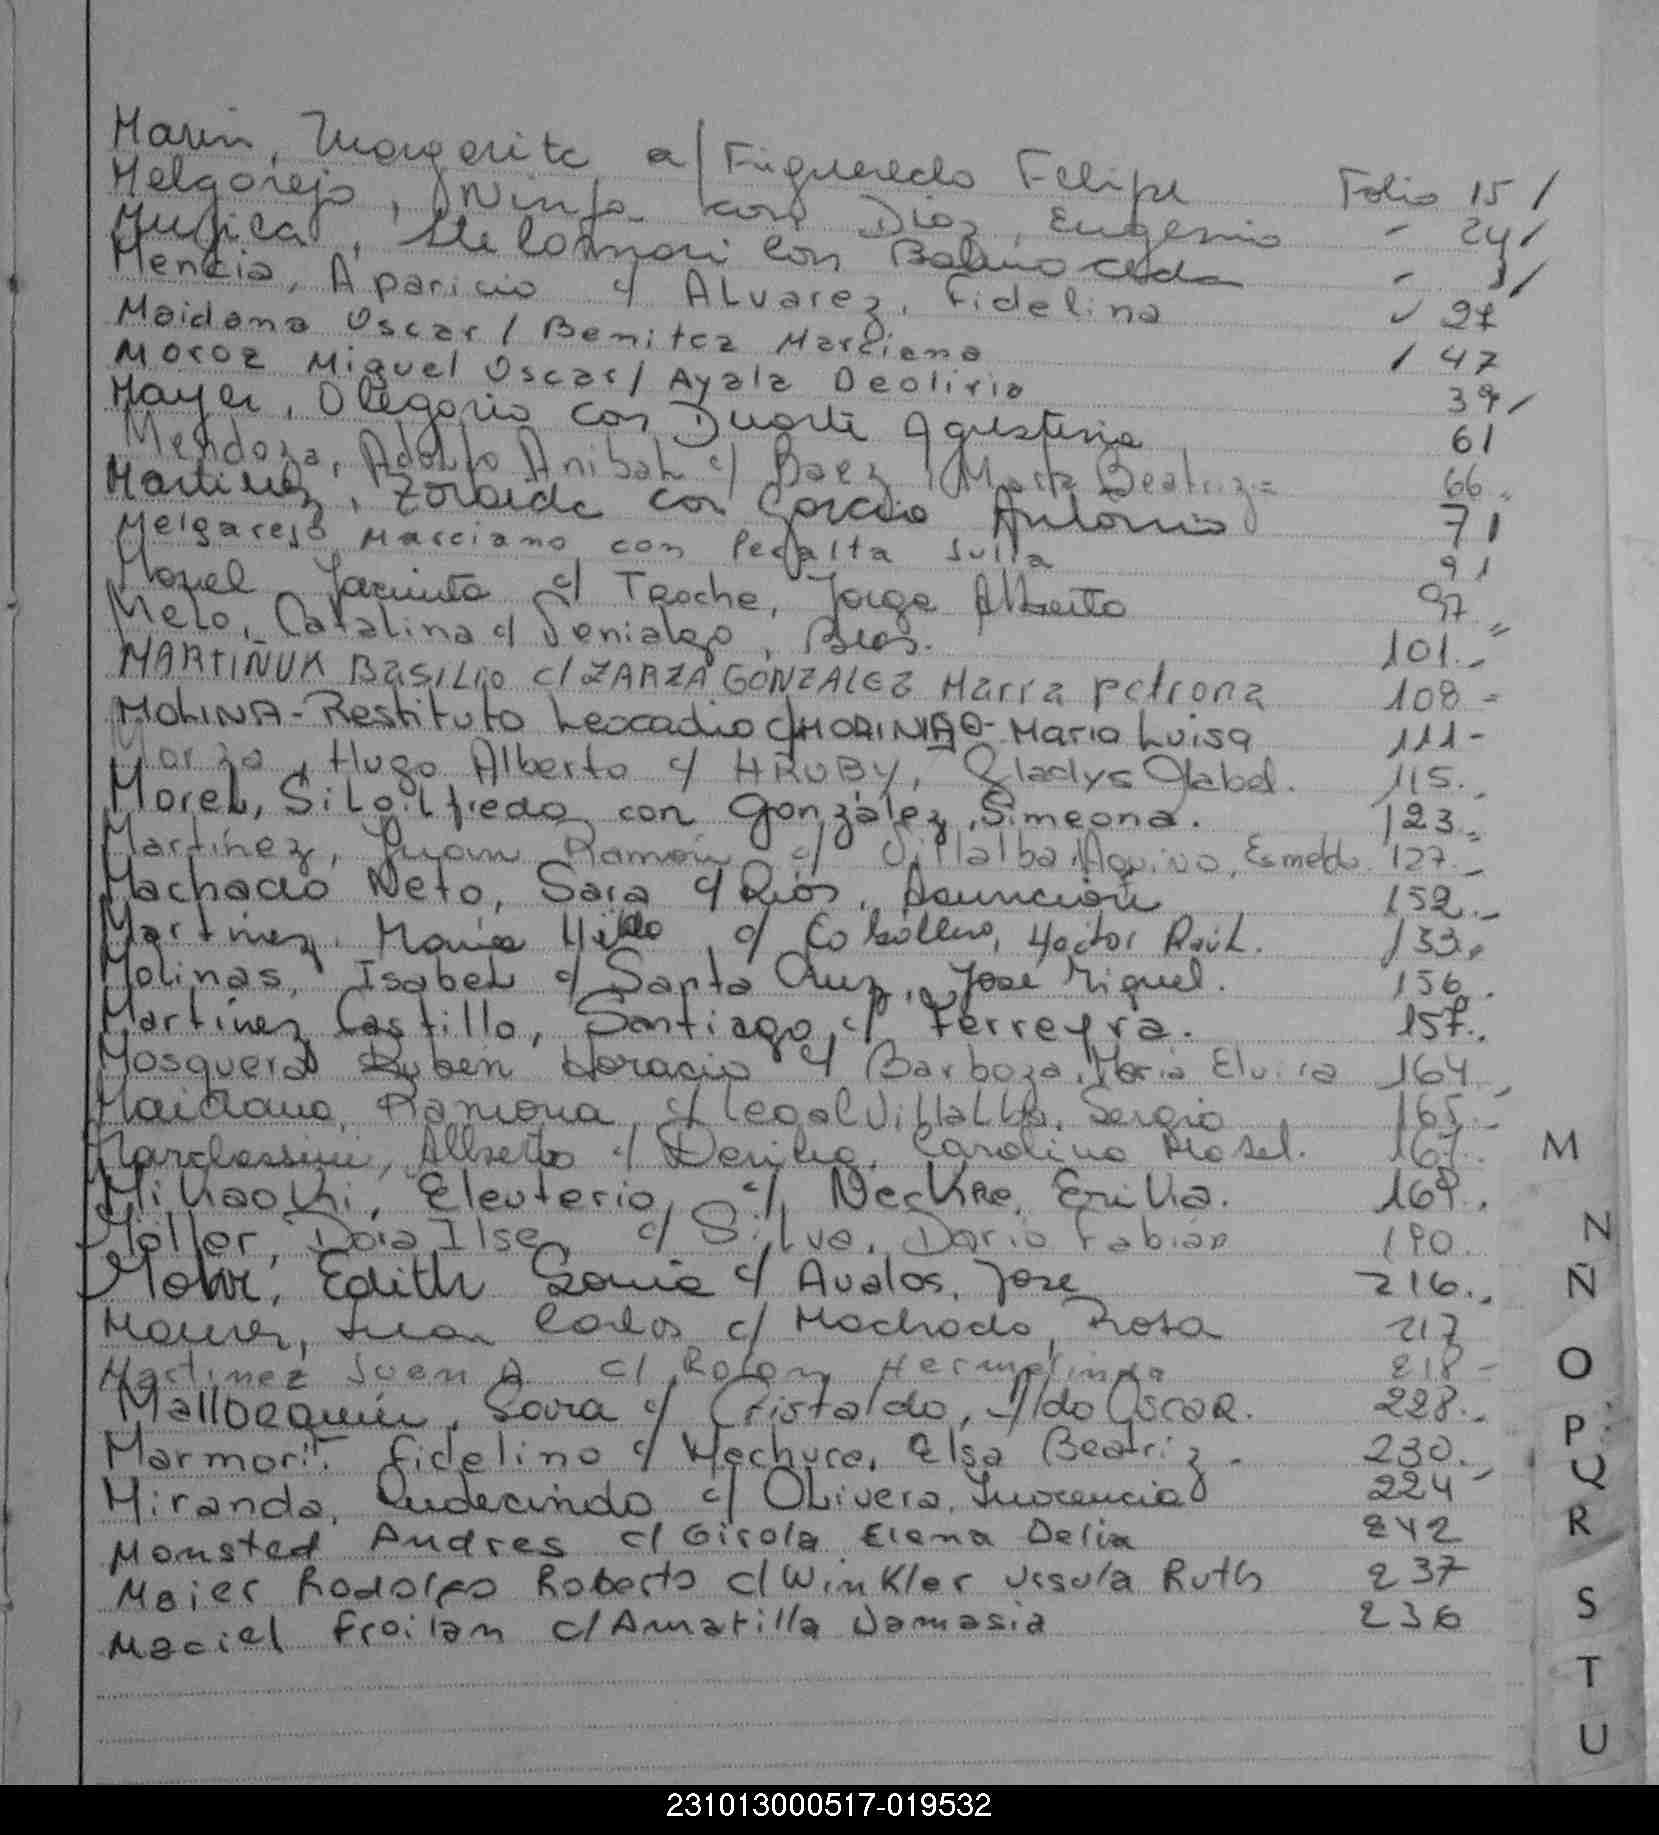 Marin, Margarita a/ Figueredo Felipe Folio 15 /
Melgarejo, Ninfa con Diaz, Eugenio " 24 /
Mujica, con
Mencia, Aparicio c/ Alvarez, Fidelina 27
Maidana Oscar / Benitez Marciana / 47
Moroz Miguel Oscar / Ayala Deoliria 39 /
Mayer, Olegorio con Duarte Agustina 61
Mendoza, Adolfo Anibal c/ Baez, Marta Beatriz = 66 "
Martinez, Zoraida con Garcia Antonio 71
Melgarejo Marciano con Peralta Julia 91
Morel Jacinta c/ Troche, Jorge Alberto 97 =
Melo, Catalina c/ Blas. 101.-
MARTIÑUK BASILIO c/ ZARZA GONZALEZ Maria Petrona 108 =
MOLINA - Restituto Leocadio c/ MORINIGO - Maria Luisa 111 -
Hugo Alberto c/ HRUBY, Gladys Mabel. 115.-
Morel, Silvilfredo con González, Simeona. 123.=
Martínez, Juan Ramón c/ Villalba Aquino, Esmelda. 127.-
Machado Neto, Sara c/ Rios, Asunción 152.-
Martinez, María Hilda c/ Caballero, Hector Raúl. 133.
Molinas, Isabel c/ Santa Cruz, José Miguel. 156.
Martínez Castillo, Santiago c/ Ferreyra. 157.
Mosquera Ruben Horacio c/ Barboza, Maria Elvira 164.-
Maidana, Ramona c/ Legal Villalba, Sergio 165.-
Alberto c/ Carolina 167.
Eleuterio c/ 169.
Möller, Dora Ilse c/ Silva, Dario Fabián 190.
Mohr, Edith Sonia c/ Avalos, Jose 216.
Maurer, Juan Carlos c/ Machado, Rosa 217
Martinez Juan A. c/ Rolon, Hermelinda 218 -
Mallorquin, Sara c/ Cristaldo, Ildo Oscar. 228.
Marmori. Fidelino c/ Elsa Beatriz. 230.
Miranda, Rudecindo c/ Olivera, Inocencia 224
Monsted Andres c/ Girola Elena Delia 242
Meier Rodolfo Roberto c/ Winkler Ursula Ruth 237
Maciel Froilan c/ Amarilla Damasia 236
M
N
Ñ
O
P
Q
R
S
T
U
231013000517-019532